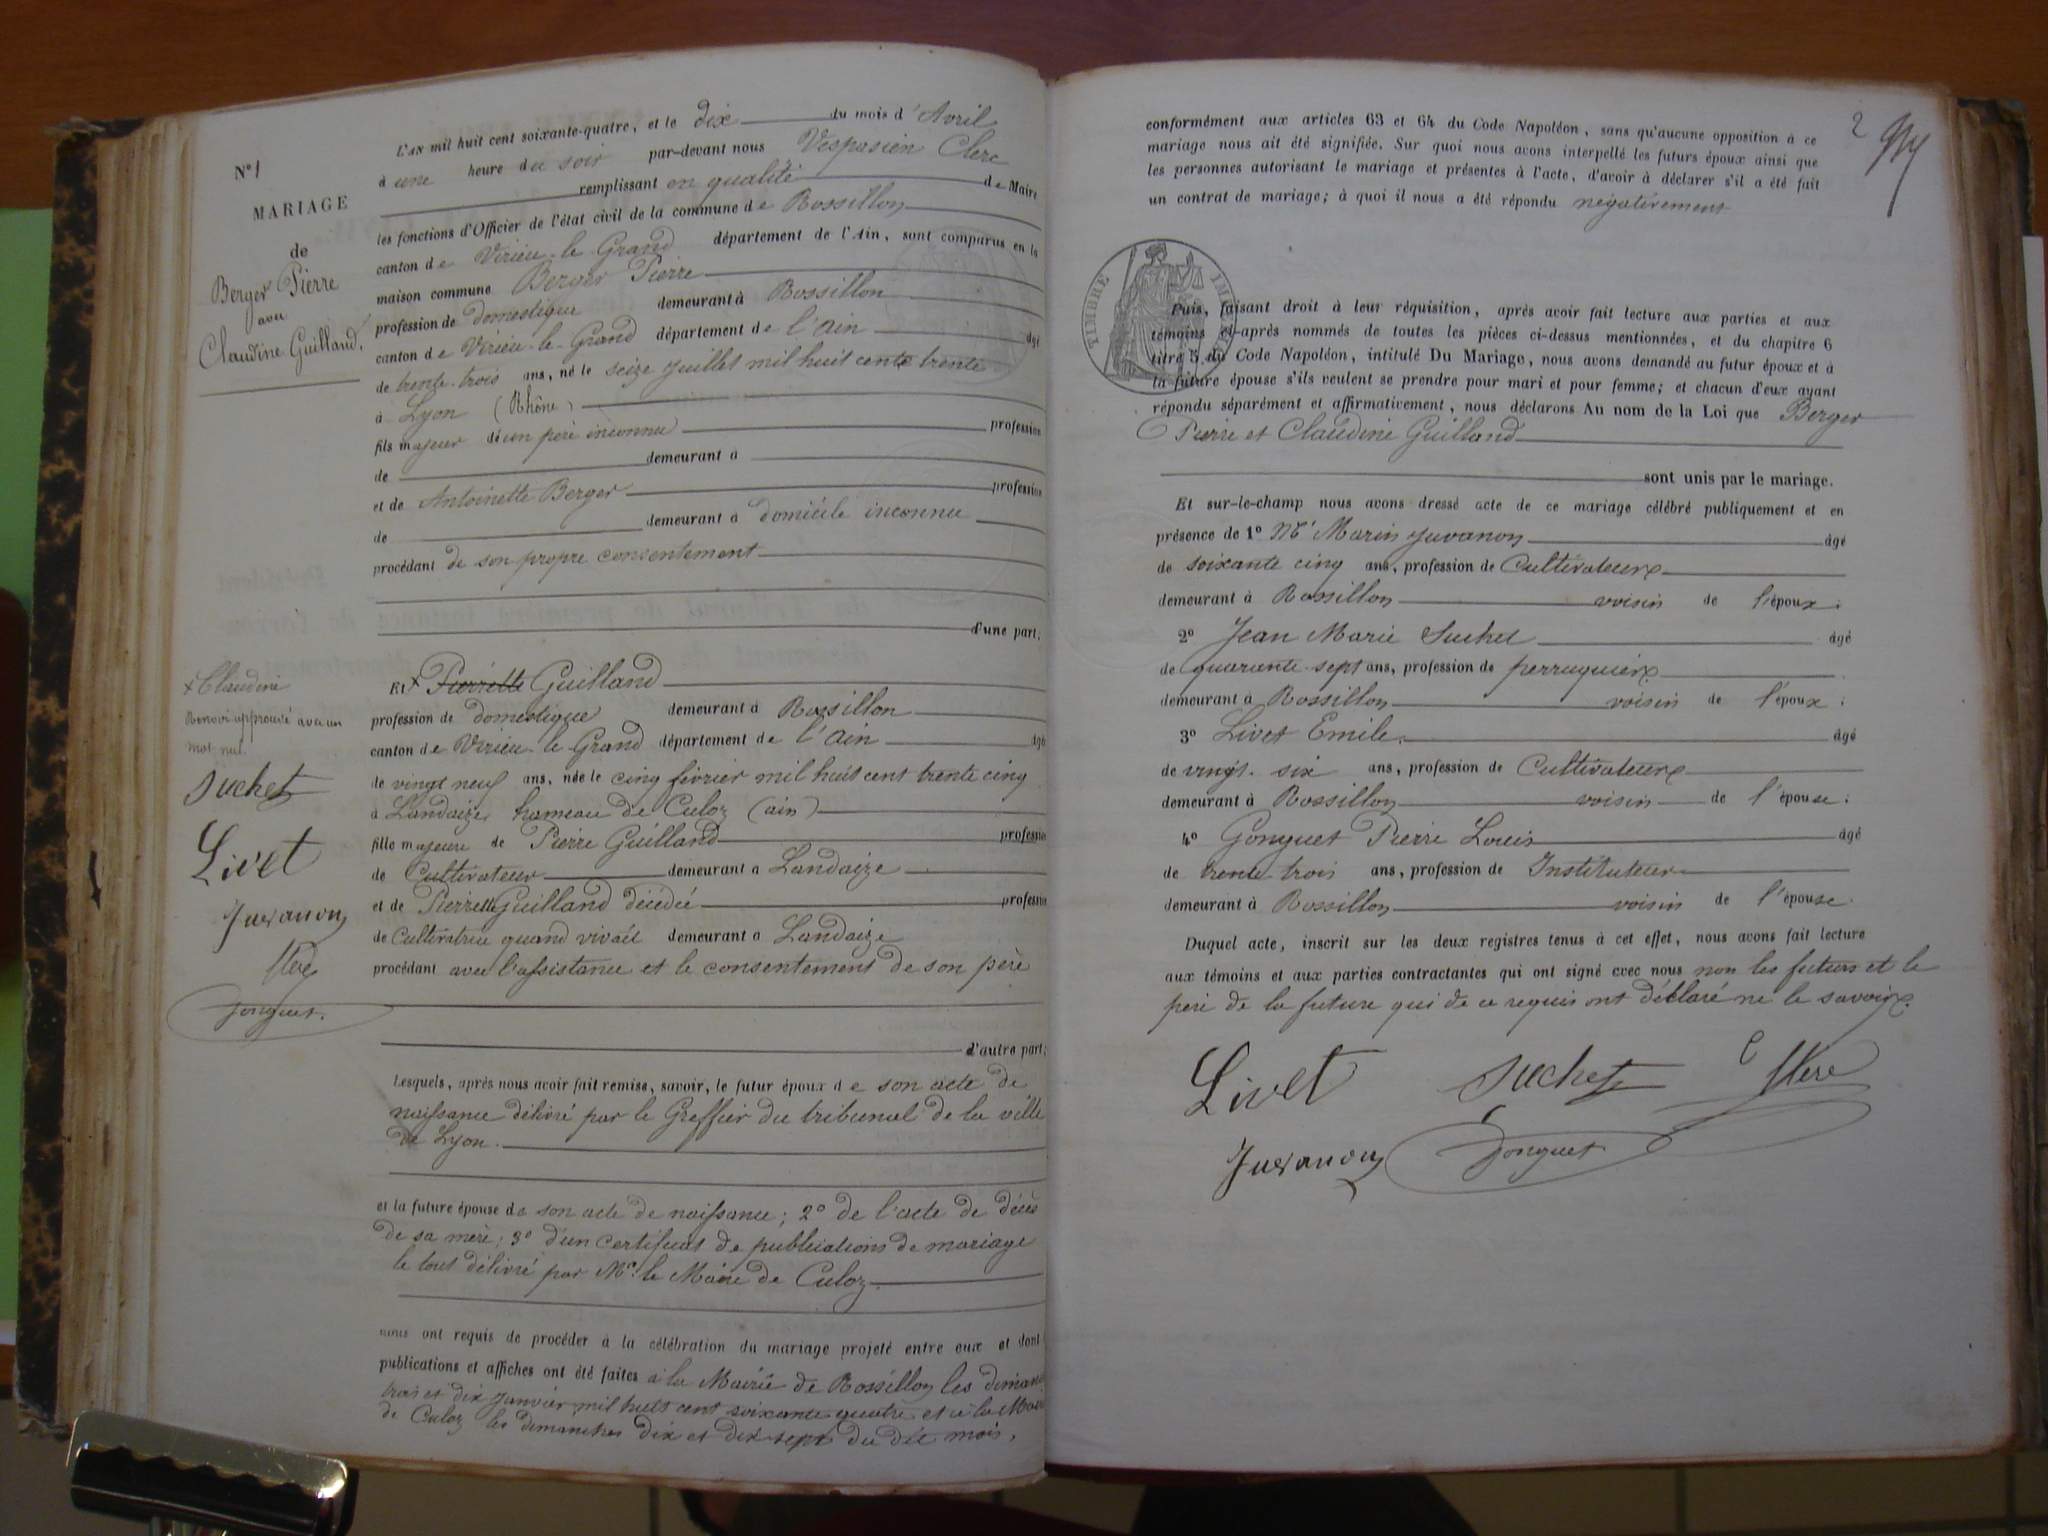 N° 1
MARIAGE
de
Berger Pierre
avec
Claudine Guilland.
L'AN mil huit cent soixante-quatre, et le dix du mois d'Avril
à une heure du soir par-devant nous Vespasien Clerc
remplissant en qualité de Maire
les fonctions d'Officier de l'état civil de la commune de Rossillon
canton de Virieu-le-Grand département de l'Ain, sont comparus en la
maison commune Berger Pierre
profession de domestique demeurant à Rossillon
canton de Virieu-le-Grand département de l'Ain âgé
de trente-trois ans, né le seize juillet mil huit cent trente
à Lyon (Rhône)
fils majeur d'un père inconnu profession
de demeurant à
et de Antoinette Berger profession
de demeurant à domicile inconnu
procédant de son propre consentement
d'une part;
x Claudine
Renvoi approuvé avec un
mot nul.
Suchet
Livet
Juvanon
Clerc
Gonguet
Et x Pierrette Guilland
profession de domestique demeurant à Rossillon
canton de Virieu-le-Grand département de l'Ain âgé
de vingt neuf ans, née le cinq février mil huit cent trente cinq
à Landaize, hameau de Culoz (ain)
fille majeure de Pierre Guilland profession
de Cultivateur demeurant à Landaize
et de Pierrette Guilland décédé profession
de Cultivatrice quand vivait demeurant à Landaize
procédant avec l'assistance et le consentement de son père
d'autre part;
Lesquels, après nous avoir fait remise, savoir, le futur époux de son acte de
naissance délivré par le Greffier du tribunal de la ville
de Lyon.
et la future épouse de son acte de naissance; 2° de l'acte de décès
de sa mère; 3° d'un certificat de publications de mariage
le tout délivré par Mr le Maire de Culoz.
nous ont requis de procéder à la célébration du mariage projeté entre eux et dont
publications et affiches ont été faites à la Mairie de Rossillon les
trois et dix janvier mil huit cent soixante quatre et à la
de Culoz les dimanches dix et dix-sept du dit mois,
2
conformément aux articles 63 et 64 du Code Napoléon, sans qu'aucune opposition à ce
mariage nous ait été signifiée. Sur quoi nous avons interpellé les futurs époux ainsi que
les personnes autorisant le mariage et présentes à l'acte, d'avoir à déclarer s'il a été fait
un contrat de mariage; à quoi il nous a été répondu négativement
TIMBRE
Puis, faisant droit à leur réquisition, après avoir fait lecture aux parties et aux
témoins ci-après nommés de toutes les pièces ci-dessus mentionnées, et du chapitre 6
titre 5 du Code Napoléon, intitulé Du Mariage, nous avons demandé au futur époux et à
la future épouse s'ils veulent se prendre pour mari et pour femme; et chacun d'eux ayant
répondu séparément et affirmativement, nous déclarons Au nom de la Loi que Berger
Pierre et Claudine Guilland
sont unis par le mariage.
Et sur-le-champ nous avons dressé acte de ce mariage célébré publiquement et en
présence de 1° Mr Marin Juvanon âgé
de soixante cinq ans, profession de Cultivateur
demeurant à Rossillon voisin de l'époux;
2° Jean Marie Suchet âgé
de quarante-sept ans, profession de perruquier
demeurant à Rossillon voisin de l'époux;
3° Livet Emile. âgé
de vingt-six ans, profession de Cultivateur
demeurant à Rossillon voisin de l'épouse;
4° Gonguet Pierre Louis âgé
de trente trois ans, profession de Instituteur
demeurant à Rossillon voisin de l'épouse
Duquel acte, inscrit sur les deux registres tenus à cet effet, nous avons fait lecture
aux témoins et aux parties contractantes qui ont signé avec nous non les futurs et le
père de la future qui de ce requis ont déclaré ne le savoir.
Livet Suchet Clerc
Juvanon Gonguet